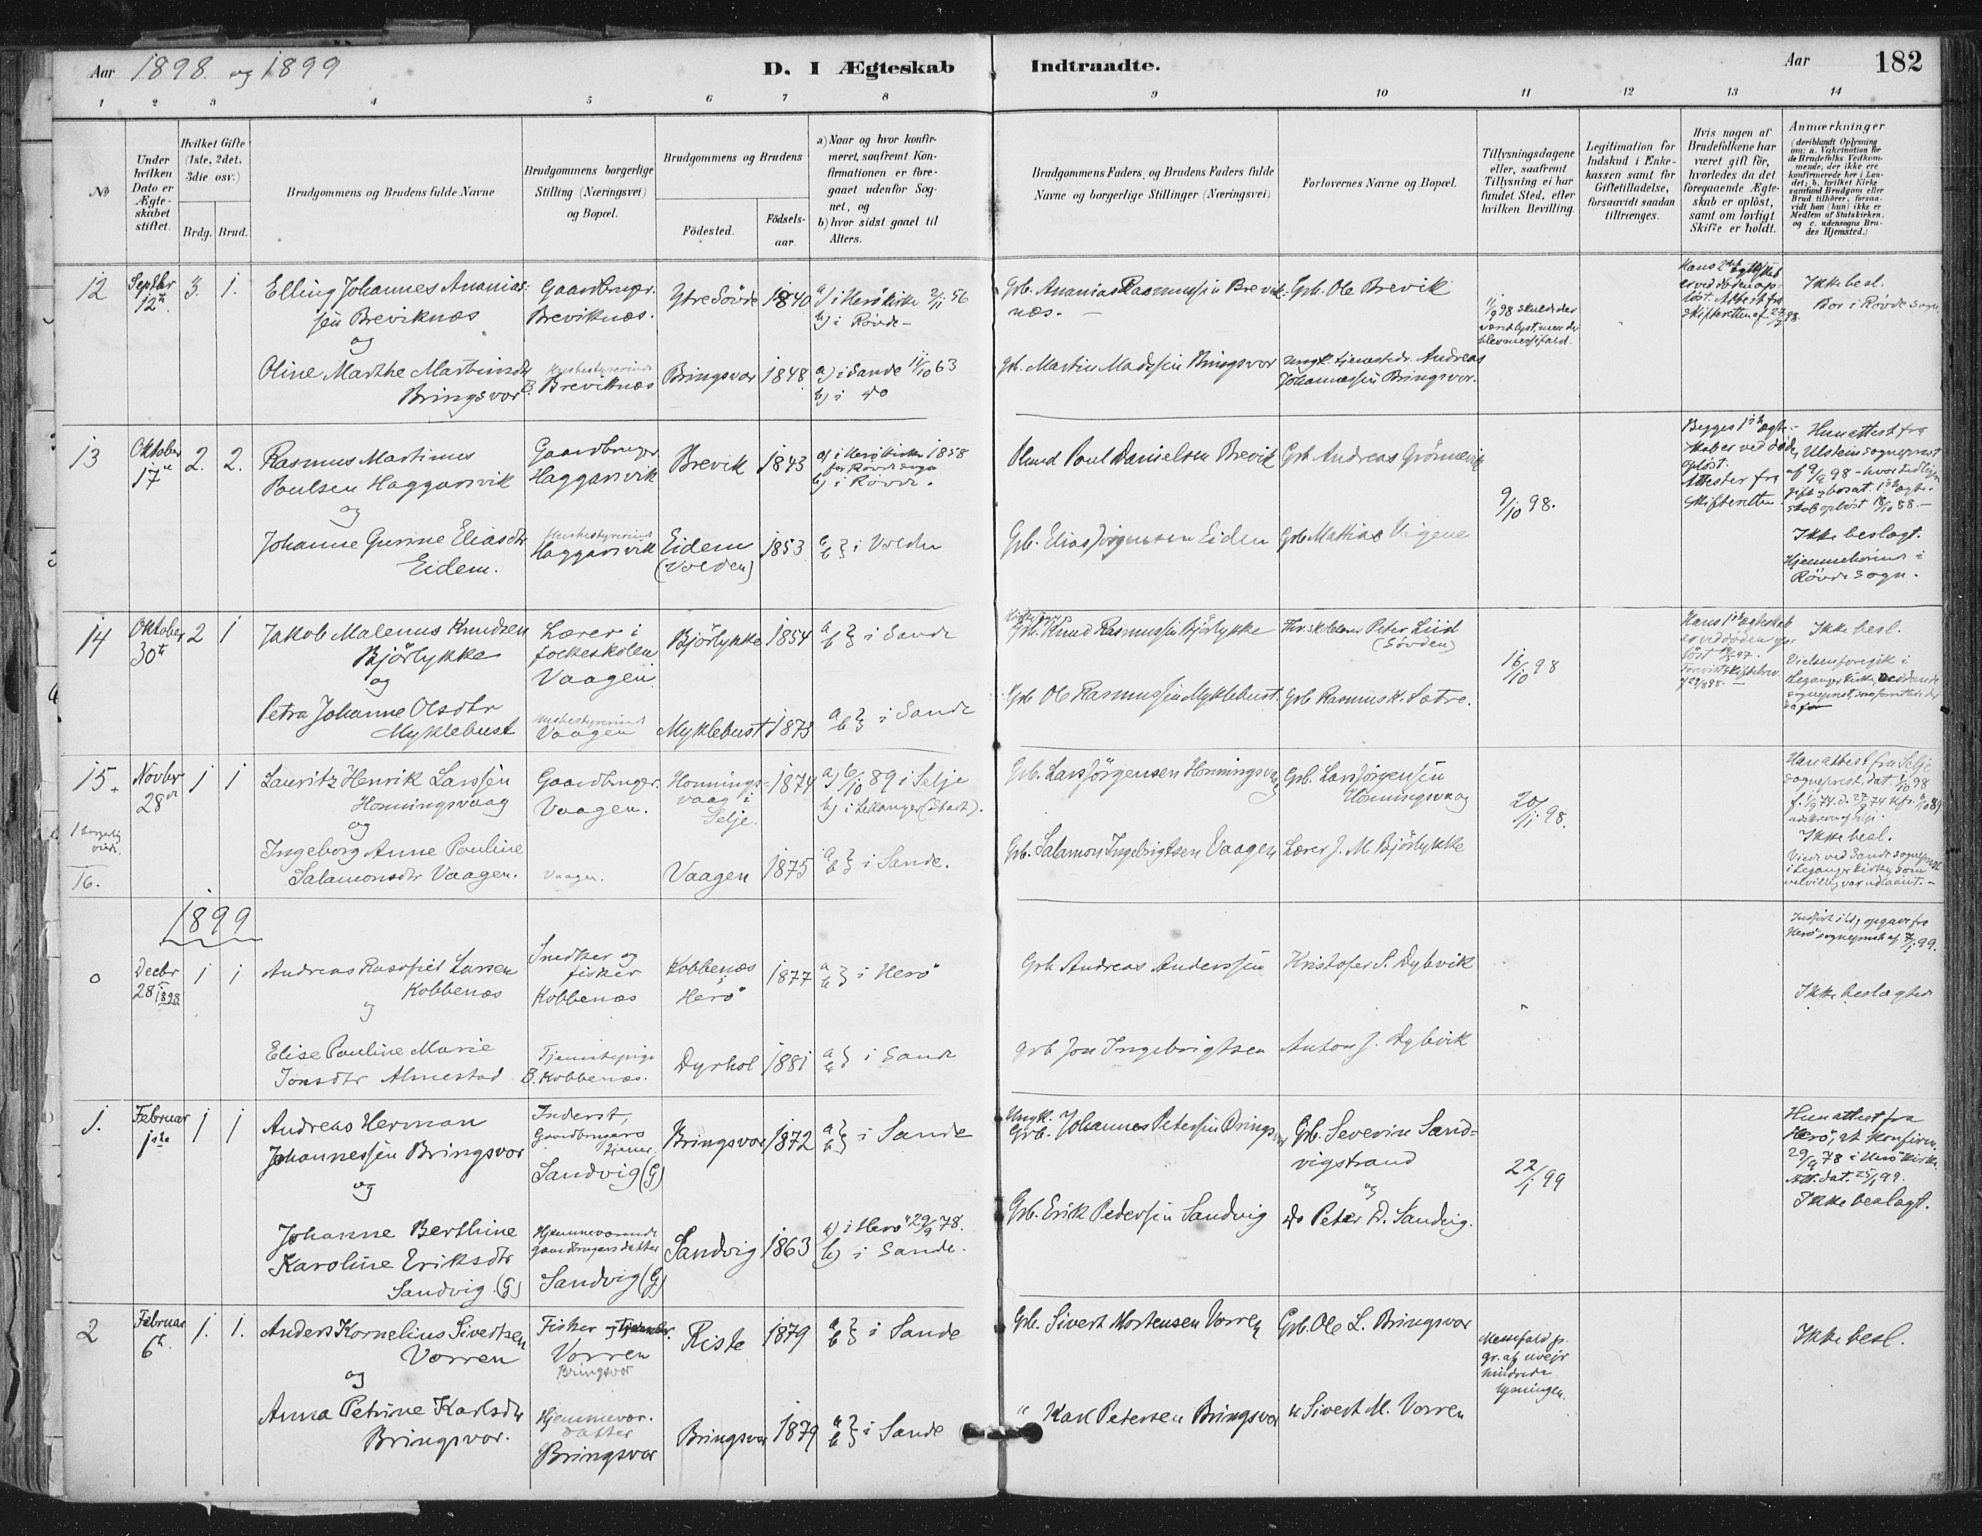 Aar 1898 og 1899
D. I Ægteskab Indtraadte.
Aar 182
1 2 3 4 5 6 7 8 9 10 11 12 13 14
No
Under hvilken Dato er Ægte-skabet stiftet.
Hvilket Gifte (1ste, 2det, 3die osv.)
Brdg. Brud.
Brudgommens og Brudens fulde Navne
Brudgommens borgerlige Stilling (Næringsvei) og Bopæl.
Brudgommens og Brudens
Fødested.
Fødsels-aar.
a) Naar og hvor konfir-meret, saafremt Kon-firmationen er fore-gaaet udenfor Sog-net, og
b) hvor sidst gaaet til Alters.
Brudgommens Faders og Brudens Faders fulde Navne og borgerlige Stillinger (Næringsvei)
Forlovernes Navne og Bopæl.
Tillysningsdagene eller, saafremt Tillysning ei har fundet Sted, efter hvilken Bevilling.
Legitimation for Indskud i Enke-kassen samt for Giftetilladelse, forsaavidt saadan tiltrænges.
Hvis nogen af Brudefolkene har været gift før, hvorledes da det foregaaende Ægte-skab er opløst, samt om lovligt Skifte er holdt.
Anmærkninger (deriblandt Oplysning om: a. Vakcination for de Brudefolks Vedkom-mende, der ikke ere konfirmerede her i Lan-det; b. hvilket Kirke-samfund Brudgom eller Brud tilhører, forsaa-vidt han (hun) ikke er Medlem af Statskirken, og c. udensogns Bru-des Hjemsted.)
12 Septbr 12te 3. 1.
Elling Johannes Ananias-
sen Breviknæs
og
Oline Marthe Martinsdtr
Bringsvor
Gaardbruger.
Breviknæs.
Husbestyrerinde
B. Breviknæs
Ytre Søvde 1840
Bringsvor 1848
a) i Herø kirke 2/11 56
b) i Røvde
a) i Sande 11/10 63
b) i do
Grb. Ananias Rasmussen Brevik-
næs.
Grb. Martin Madssen Bringsvor
Grb. Ole Brevik
Ungk. tjenestedr. Andreas
Johannessen Bringsvor.
11/9 98 skulde der
Hans 2det ægteskab
er ved døden op-
løst. Attest fra
skifteretten af 27/7 98.
Ikke besl.
Bor i Røvde sogn
13 Oktober 17de 2. 2.
Rasmus Martinus
Poulsen Haggarsvik
og
Johanne Gurine Eliasdtr
Eidem.
Gaardbruger
Haggarsvik
Husbestyrerinde
Haggarsvik
Brevik 1843
Eidem 1853
(Volden)
a) i Herø kirke 1858
for Røvde sogn
b) i Røvde.
a b } i Volden
Poul Danielsen Brevik
Grb. Elias Jørgensen Eiden
Grb Andreas Grønnevik
Grb Mathias Vigene
9/10 98.
Begges 1ste ægte-
skaber ved død
opløst.
Attester fra
skifteretten.
Hun attest fra
Ulstein sogneprest
af 9/9 98
Ikke beslagt.
Hjemmehørende i
Røvde sogn.
14 Oktober 30te 2 1
Jakob Malenus Knudsen
Bjørlykke
og
Petra Johanne Olsdtr
Myklebust
Lærer i
folkeskolen
Vaagen.
Husbestyrerinde
Vaagen
Bjørlykke 1854
Myklebust 1873
a b } i Sande
a b } i Sande
Grb. Knud Rasmussen Bjørlykke
Grb. Ole Rasmussen Myklebust.
Peter Liid
(Søvden)
Grb Rasmus K. Sætre.
16/10 98
Hans 1ste ægteskab
er ved døden op-
løst
Ikke besl.
Vielsen foregik i
15. Novbr 28de 1 1
1 borgerlig
viede.
16.
Lauritz Henrik Larssen
Honningsvaag
og
Ingeborg Anne Pauline
Salamonsdtr Vaagen.
Gaardbruger.
Vaagen.
Vaagen.
Honnings-
vaag i
Selje. 1874
Vaagen 1875
a) 6/10 89 i Selje
b) i Lekanger (Stadt).
a b } i Sande.
Grb. Lars Jørgensen Honningsvaag
Grb. Salamon Ingebrigtsen Vaagen
Grb. Lars Jørgensen
Honningsvaag
Lærer J. M Bjørlykke
20/11 98.
Han attest fra Selje
sogneprest, dat. 98
Ikke besl.
Viede ved Sande sogneprest
i Leganger kirke, som
velvillig var udlaant.
1899
0 Decbr 28 1898 1 1
Andreas Larsen
Kobbenæs
og
Elise Pauline Marie
Jonsdtr Almestad
Snedker og
fisker
Kobbenæs
Tjenestepige
B. Kobbenæs.
Kobbenæs
Herø 1877
Dyrhol 1881
a b } i Herø
a b } i Sande
Grb Andreas Anderssen
Grb Jon Ingebrigtsen
Kristofer S. Dybvik
Anton J. Dybvik
Indført i flg. opgave fra
Herø sogneprest af 7/1 99.
Ikke beslægtede
1. Februar 1ste 1 1
Andreas Herman
Johannessen Bringsvor
og
Johanne Berthine
Karoline Eriksdtr
Sandvig. (G)
Inderst,
Gaardbrugers
tjener.
Sandvig (G)
Hjemmeværende
gaardbrugers datter
Sandvig (G)
Bringsvor 1872
Sandvig 1863
a b } i Sande
a) i Herø 29/9 78.
b) i Sande.
Ungk.
Grb. Johannes Petersen Bringsvor
Grb. Erik Pedersen Sandvig
Grb. Severin Sand-
vigstrand
og
do Peter D. Sandvig.
22/1 99
Hun attest fra
Herø, at konfirm.
29/9 78 i Herø kirke.
Att. dat. 25/1 99.
Ikke beslagt.
2 Februar 6te 1. 1.
Anders Kornelius Sivertsen
Vorren
og
Anna Petrine Karlsdtr
Bringsvor.
Fisker
Vorren
Bringsvor
Hjemmevær.
datter
Bringsvor
Riste 1879
Bringsvor 1879
a b } i Sande
a b } i Sande
Grb. Sivert Mortensen Vorren
" Karl Petersen Bringsvor
Grb. Ole L. Bringsvor
" Sivert M. Vorren
Messefald p.
gr. af uveir
hindrede
lysningen.
Ikke besl.